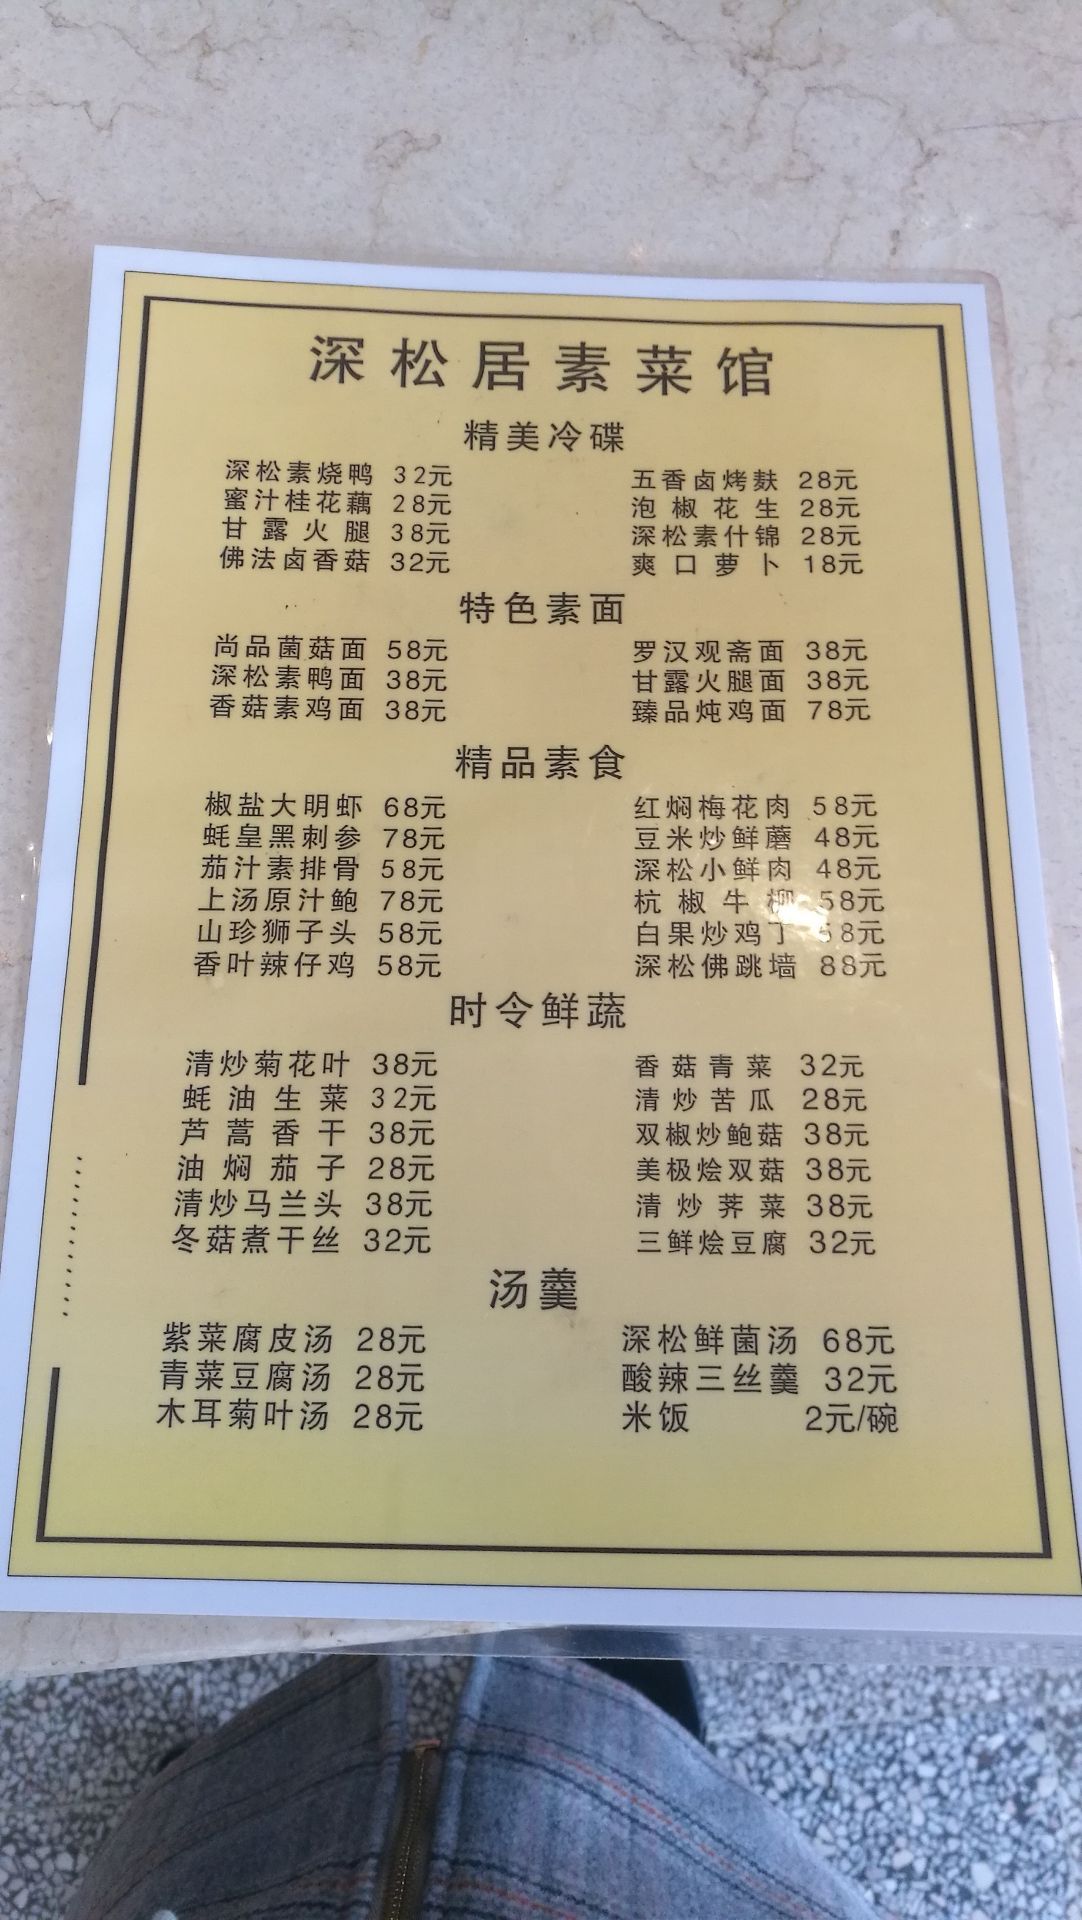 深松居素菜馆
精美冷碟
深松素烧鸭 32元 五香卤烤麸 28元
蜜汁桂花藕 28元 泡椒花生 28元
甘露火腿 38元 深松素什锦 28元
佛法卤香菇 32元 爽口萝卜 18元
特色素面
尚品菌菇面 58元 罗汉观斋面 38元
深松素鸭面 38元 甘露火腿面 38元
香菇素鸡面 38元 臻品炖鸡面 78元
精品素食
椒盐大明虾 68元 红焖梅花肉 58元
蚝皇黑刺参 78元 豆米炒鲜蘑 48元
茄汁素排骨 58元 深松小鲜肉 48元
上汤原汁鲍 78元 杭椒牛柳 58元
山珍狮子头 58元 白果炒鸡丁 58元
香叶辣仔鸡 58元 深松佛跳墙 88元
时令鲜蔬
清炒菊花叶 38元 香菇青菜 32元
蚝油生菜 32元 清炒苦瓜 28元
芦蒿香干 38元 双椒炒鲍菇 38元
油焖茄子 28元 美极烩双菇 38元
清炒马兰头 38元 清炒荠菜 38元
冬菇煮干丝 32元 三鲜烩豆腐 32元
汤羹
紫菜腐皮汤 28元 深松鲜菌汤 68元
青菜豆腐汤 28元 酸辣三丝羹 32元
木耳菊叶汤 28元 米饭 2元/碗